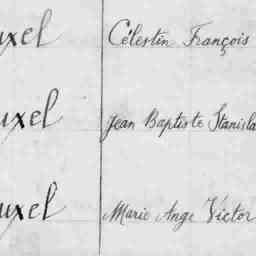 uxel Célestin François
uxel Jean Baptiste Stanisla
uxel Marie Ange Victor